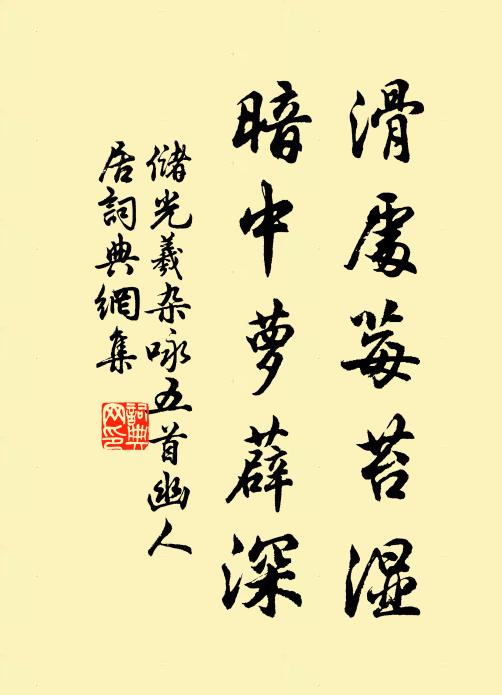 滑處莓苔濕
暗中萝薜深
儲光羲杂咏五首幽人
居詞典網集
詞典網印